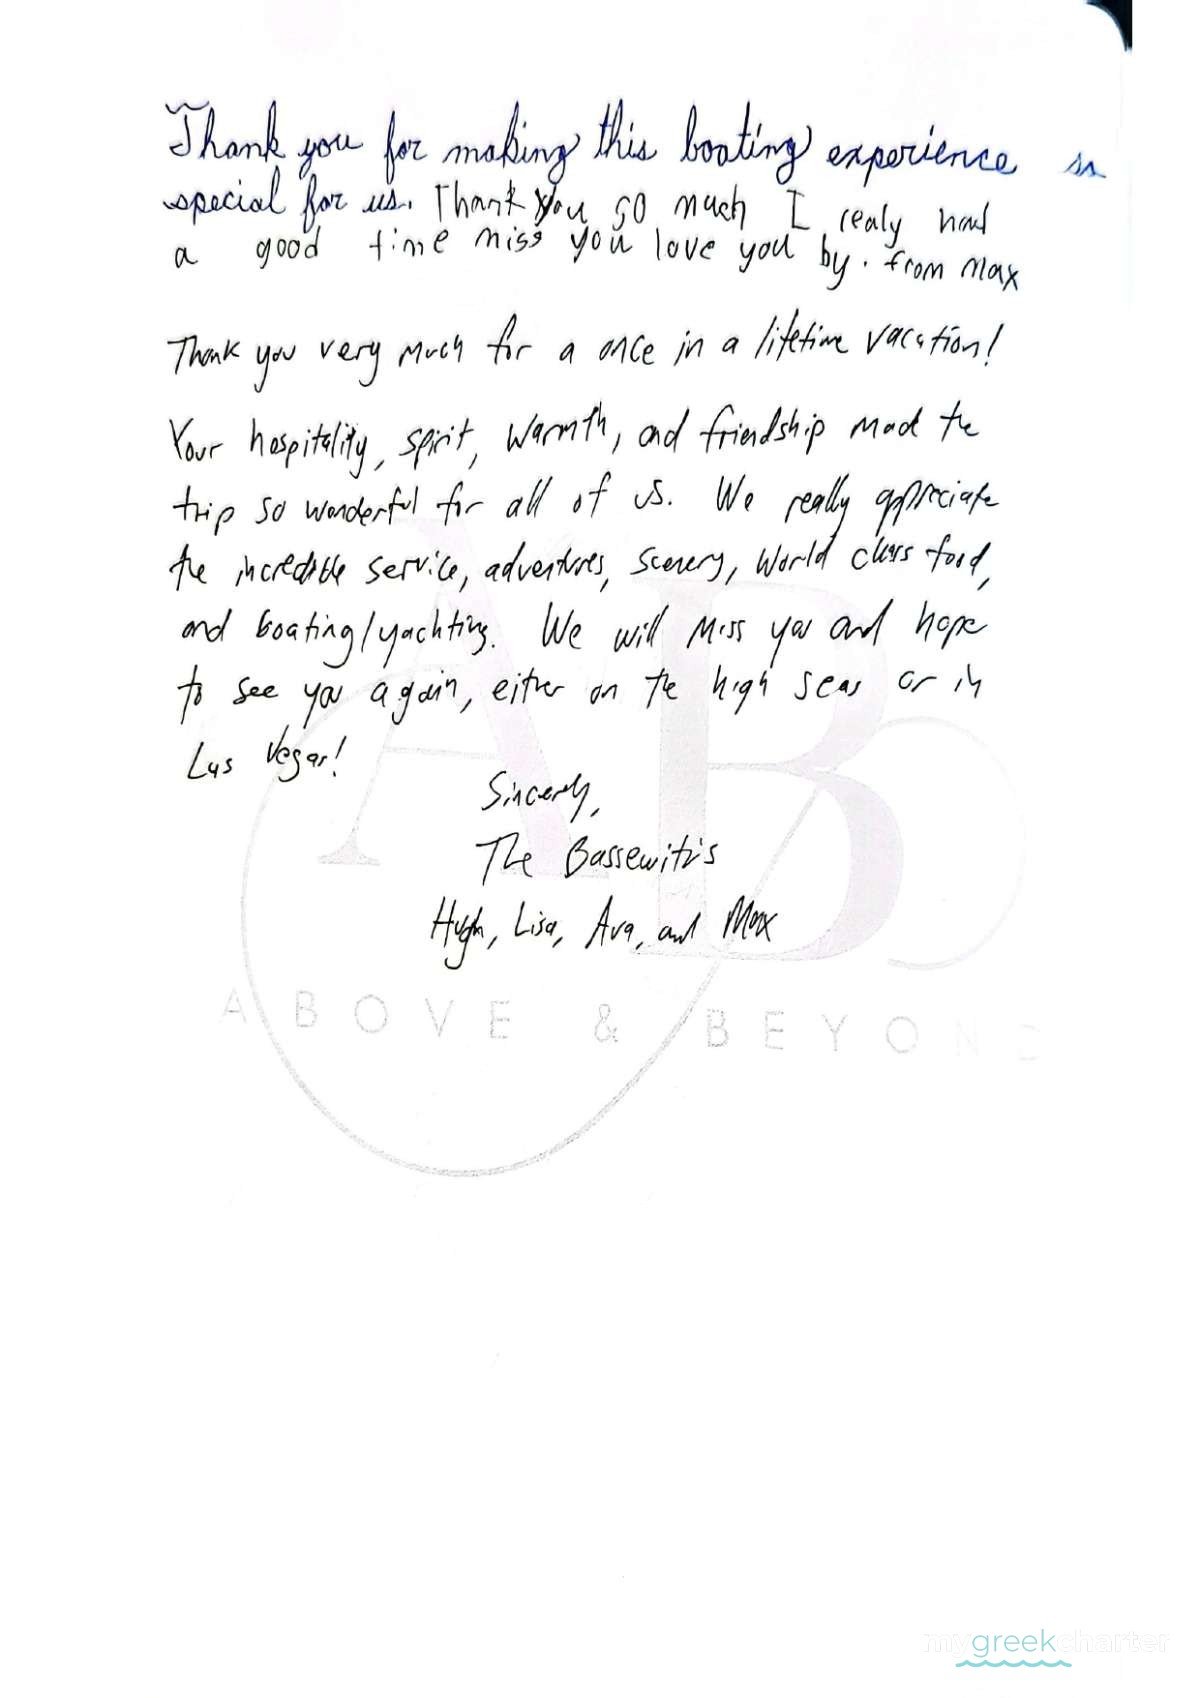 Thank you for making this boating experience so
special for us. Thank you so much I realy had
a good time miss you love you by. from Max
Thank you very much for a once in a lifetime vacation!
Your hospitality, spirit, warmth, and friendship made the
trip so wonderful for all of us. We really appreciate
the incredible service, adventures, scenery, world class food,
and boating/yachting. We will miss you and hope
to see you again, either on the high seas or in
Las Vegas!
Sincerely,
The Bassewitz's
Hugh, Lisa, Ava, and Max
AB
ABOVE & BEYOND
mygreekcharter